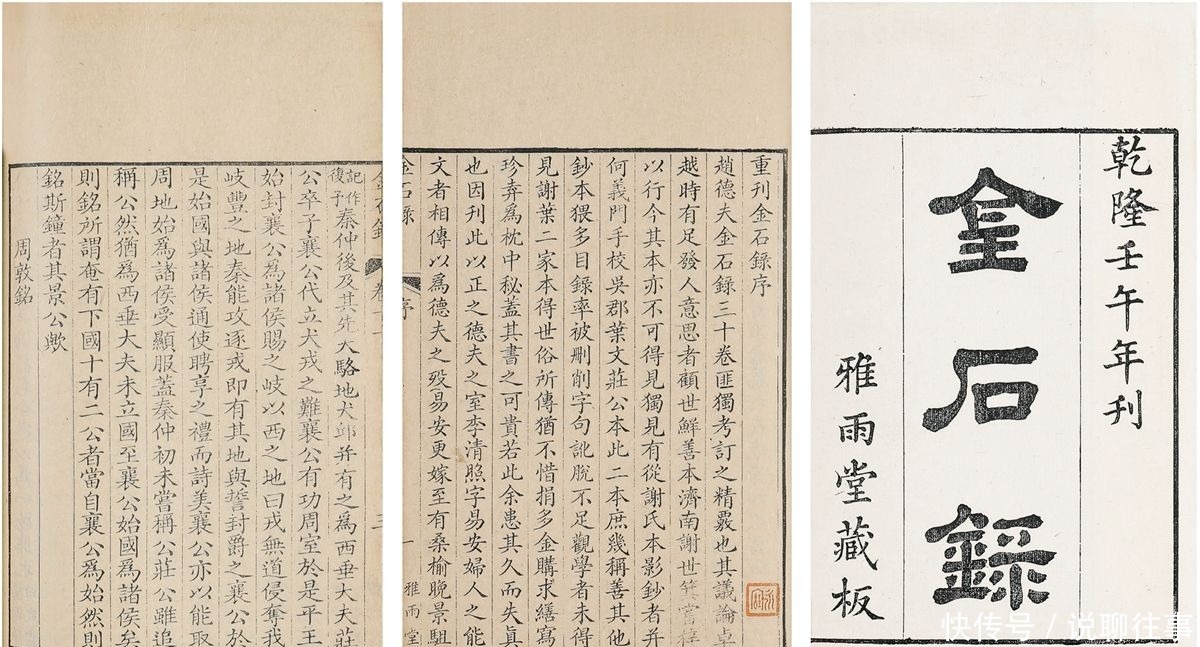 乾隆壬午年刊
金石錄
雅雨堂藏板
重刊金石録序
趙德夫金石録三十卷匪獨考訂之精覈也其議論卓
越時有足發人意思者顧世鮮善本濟南謝世箕嘗梓
以行今其本亦不可得見獨見有從謝氏本影鈔者并
何義門手校吳郡葉文莊公本此二本庶幾稱善其他
鈔本猥多目録率被刪削字句訛脫不足觀學者未得
見謝葉二家本得世俗所傳猶不惜捐多金購求繕寫
珍弆爲枕中秘蓋其書之可貴若此余患其久而失真
也因刊此以正之德夫之室李清照字易安婦人之能
文者相傳以爲德夫之歿易安更嫁至有桑榆晚景駔
金石録 序 一 雅雨堂
記作復子秦仲後及其先大駱地犬邱并有之爲西垂大夫莊
公卒子襄公代立犬戎之難襄公有功周室於是平王
始封襄公爲諸侯賜之岐以西之地曰戎無道侵奪我
岐豐之地秦能攻逐戎即有其地與誓封爵之襄公於
是始國與諸侯通使聘享之禮而詩美襄公亦以能取
周地始爲諸侯受顯服蓋秦仲初未嘗稱公莊公雖追
稱公然猶爲西垂大夫未立國至襄公始國爲諸侯矣
則銘所謂奄有下國十有二公者當自襄公爲始然則
銘斯鐘者其景公歟
周敦銘
快传号 / 说聊往事